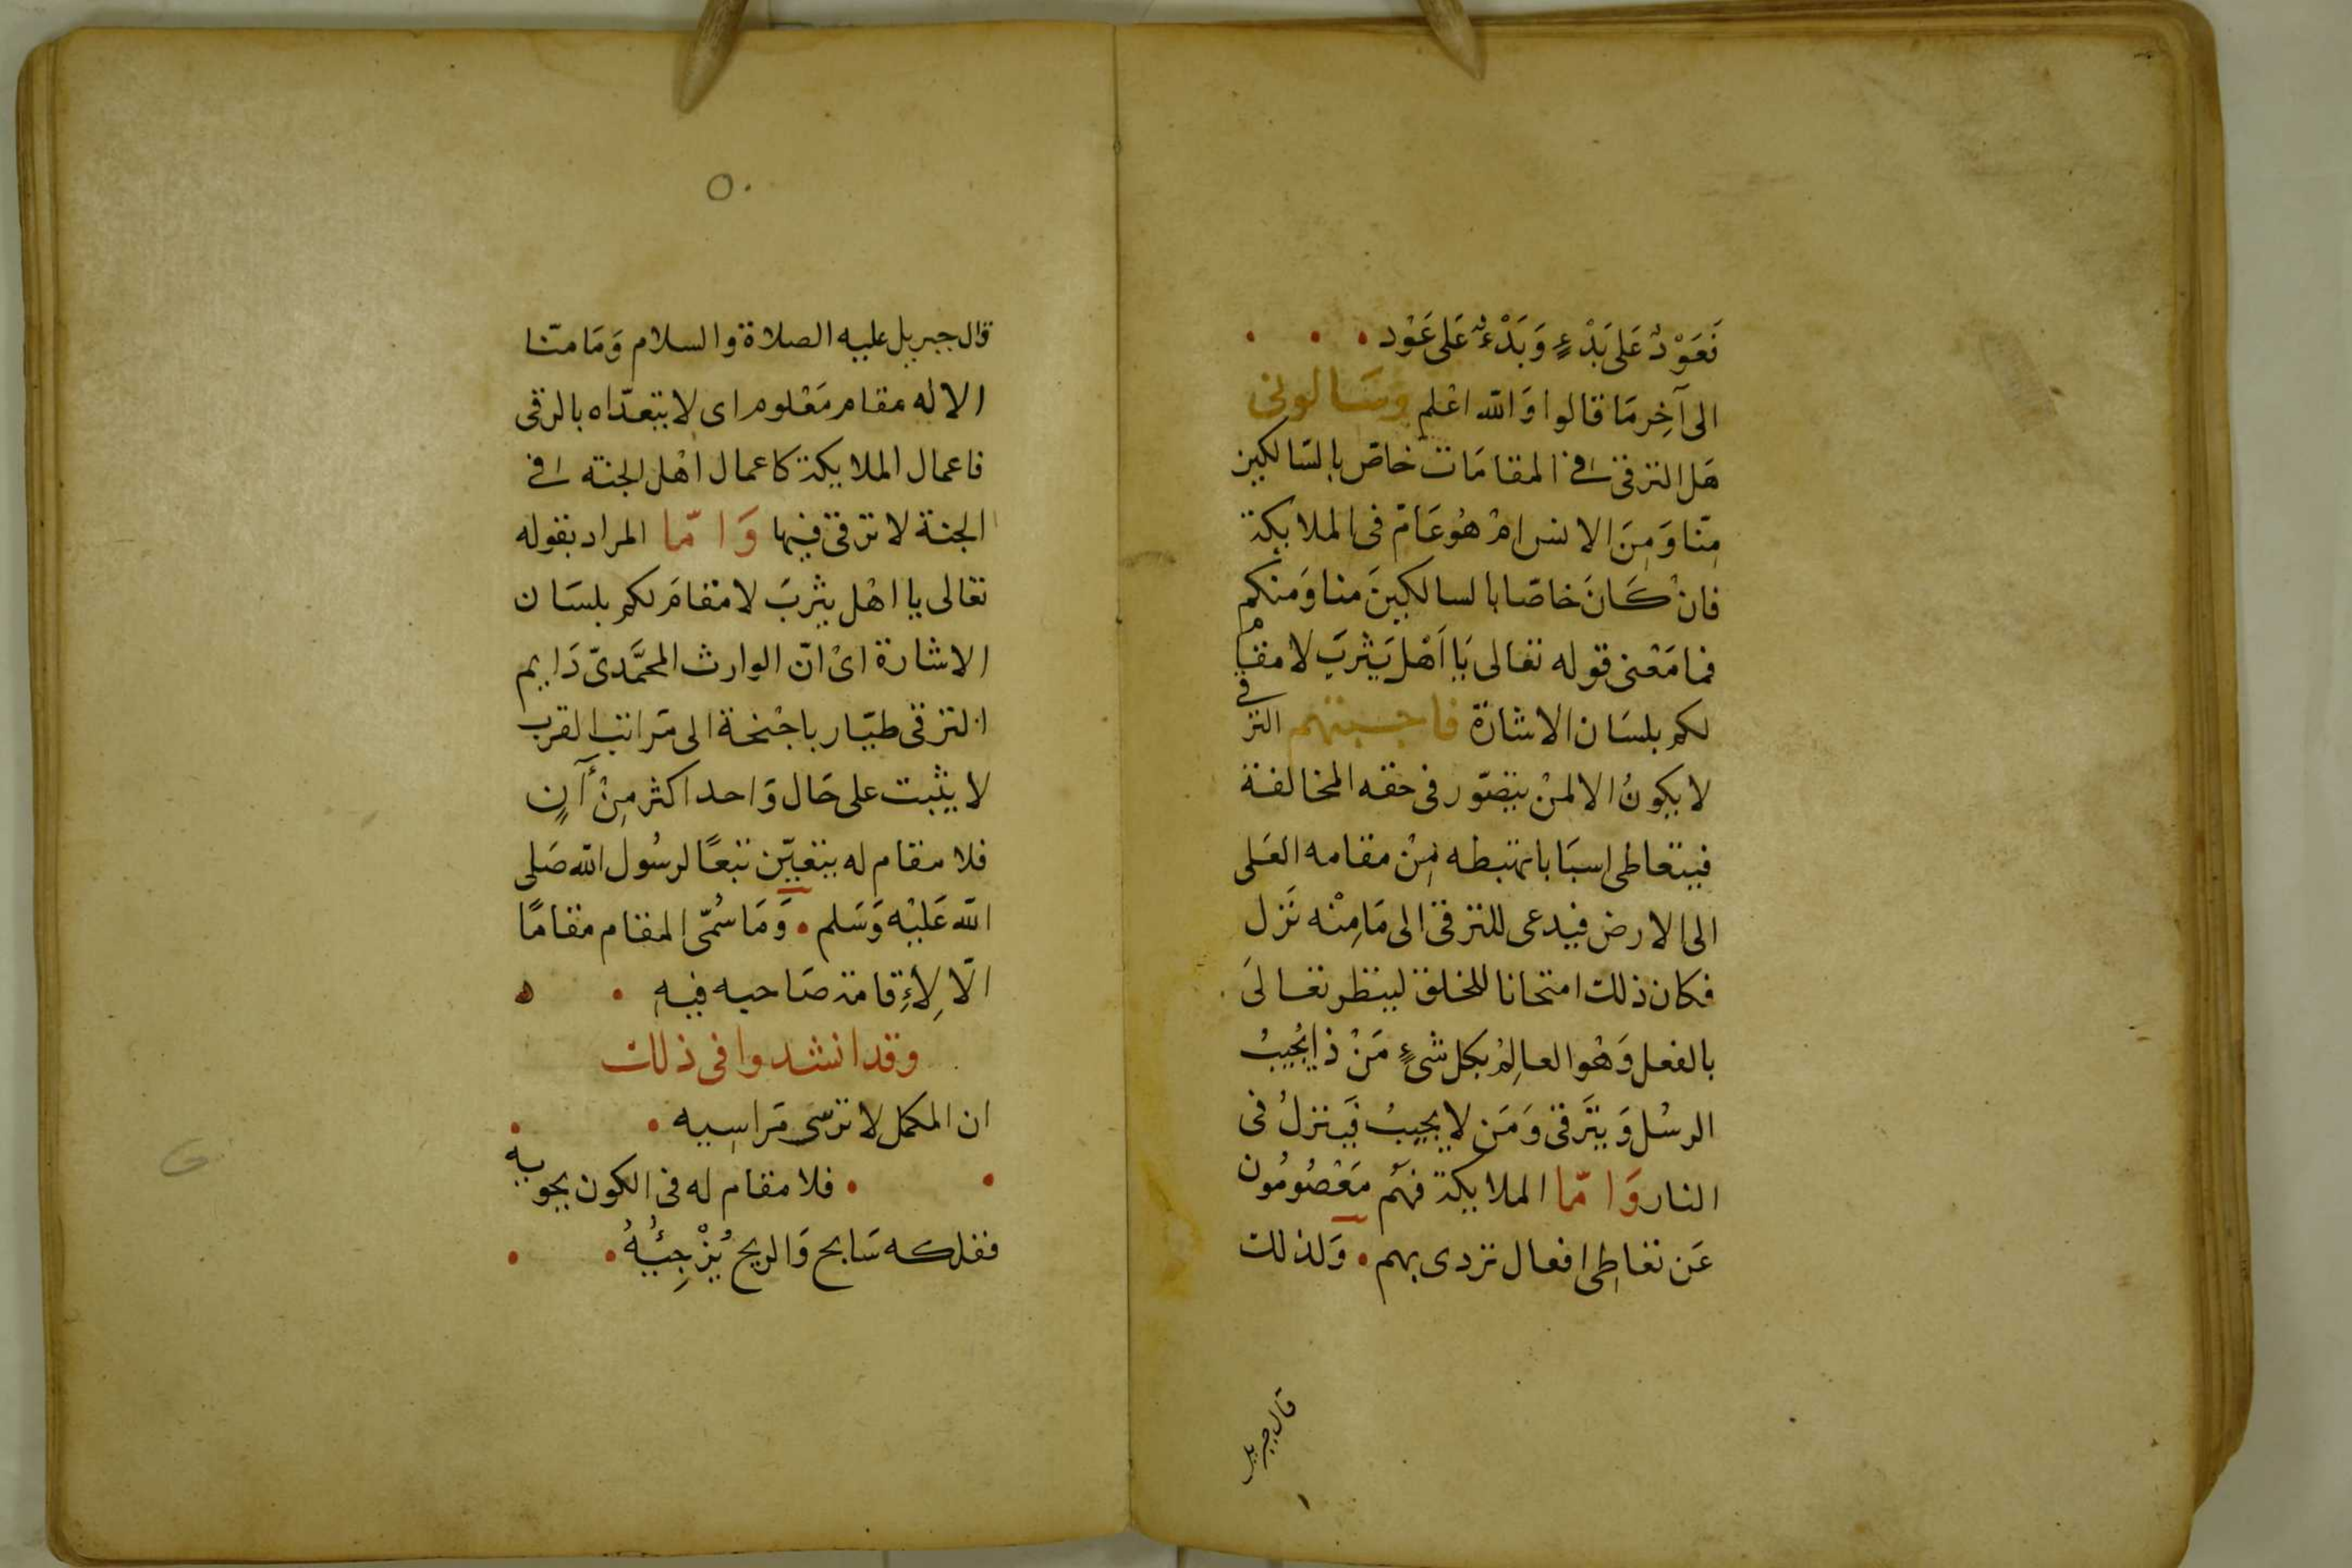 فَعَوْدٌ عَلَى بَدْءٍ وَبَدْءٌ عَلى عَوْد
الى آخِر مَا قالوا وَالله اعْلم وَسَالونى
هَل الترقى فى المقامَات خاصّ بالسَالكين
مِنّا وَمِنَ الانس امْ هُوعَامّ فى الملايكة
فانْ كَانَ خاصّا بالسالكينَ منا وَمنكم
فما مَعْنى قوله تعالى يَا اَهْل يَثْربَ لا مقام
لكم بلسَان الاشارة فاجبتهم الترقى
لا يكونُ الا لمنْ يتصوّر فى حقه المخالفة
فيتعاطى اسبَابا تهبطه مِنْ مقامه العَلى
الى الارض فيدعى للترقى الى مَا مِنْه نَزل
فكان ذلك امتحانا للخلق لينظر تعالىَ
بالفعل وَهْوالعالِمْ بكل شىءٍ مَنْ ذا يُجيبُ
الرسُل وَيتَرقى وَمَن لا يجيبُ فَينزلُ فى
النار وَامّا الملايكة فهُم مَعْصُومُون
عَن تعاطِى افعال تردى بهم وَلذلك
قال جبريل
١
٥٠
قال جبريل عليه الصلاة والسلام وَمَا منّا
الا له مقام مَعْلوم اى لا يتعدّاه بالرقى
فاعمال الملايكة كاعمال اهْل الجنة فى
الجنة لا ترقى فيها وَامّا المراد بقوله
تعالى يا اهْل يثربَ لا مقامَ لكم بلسَان
الاشارة اىْ انّ الوارث المحمَّدىّ دَايم
الترقى طيّار باجْنحة الى مَراتب القرب
لا يثبت على حَال وَاحد اكثر مِنْ آنٍ
فلا مقام له يتعيّن تبعًا لرسُول الله صَلى
الله عَليْه وَسَلم وَمَا سُمّى المقام مقامًا
الّا لِاءِقامة صَاحبه فيه ه
وقد انشدوا فى ذلك
ان المكمل لا ترسى مَراسِيه
فلا مقام له فى الكون يحويه
ففلكه سَابح وَالريح يُزْجِيُهُ